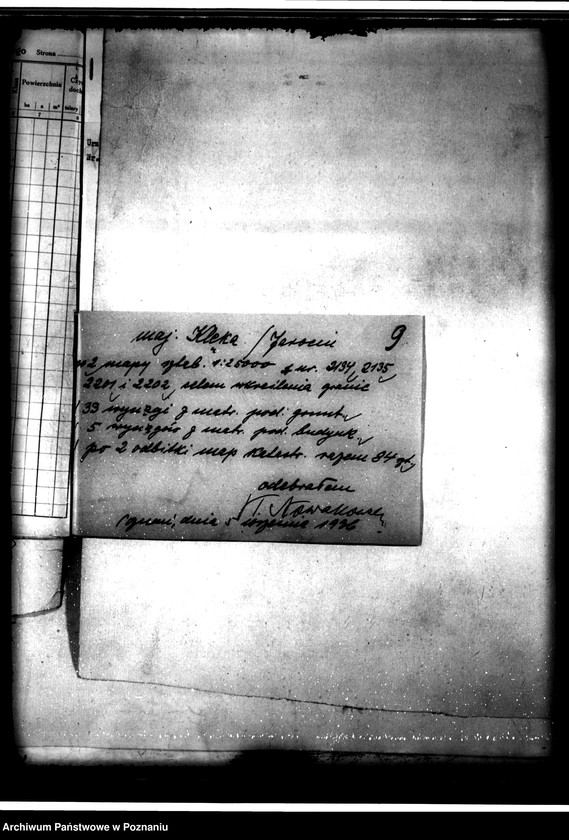 Strona
Powierzchnia
ha a m²
7 8
maj. Klęka / Jarocin 9
2 mapy szt. 1:25000 z nr. 2134, 2135,
2201 i 2202, celem wkreślenia granic
33 wyciągi z matr. pod. grunt.
5 wyciągów z matr. pod. budynk.
po 2 odbitki map katastr. razem 84
odebrałem
Nowakowski
Poznań, dnia 5 września 1936
Archiwum Państwowe w Poznaniu